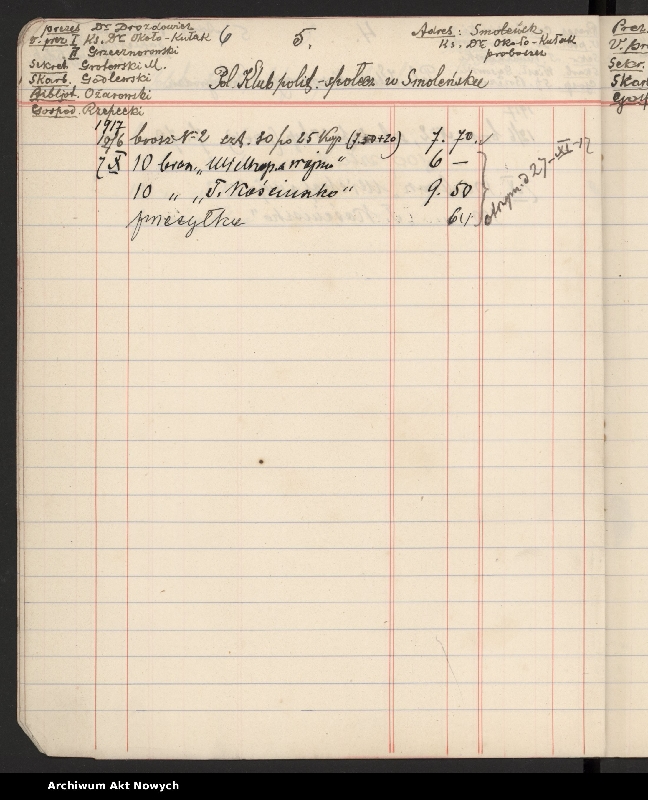 prezes Dr Drozdowicz
v. prez I Ks. Dr Około-Kułak
II Grzecznorowski
Sekret. Grotowski M.
Skarb. Sadlewski
Bibljot. Ożarowski
Gospod. Rzepecki
6
5.
Adres: Smoleńsk
Ks. Dr Około-Kułak
proboszcz
Pol. Klub polit.-społecz w Smoleńsku
1917
19/6 brosz № 2 egz. 30 po 25 Kop (7.50+20) 7. 70.
7 X 10 brosz. „Wielkop. a wojna” 6 —
10 „ „T. Kościuszko” 9. 50
przesyłka 64
otrzym. d 27-XI-17
Prez.
Sekr.
Skar
Archiwum Akt Nowych